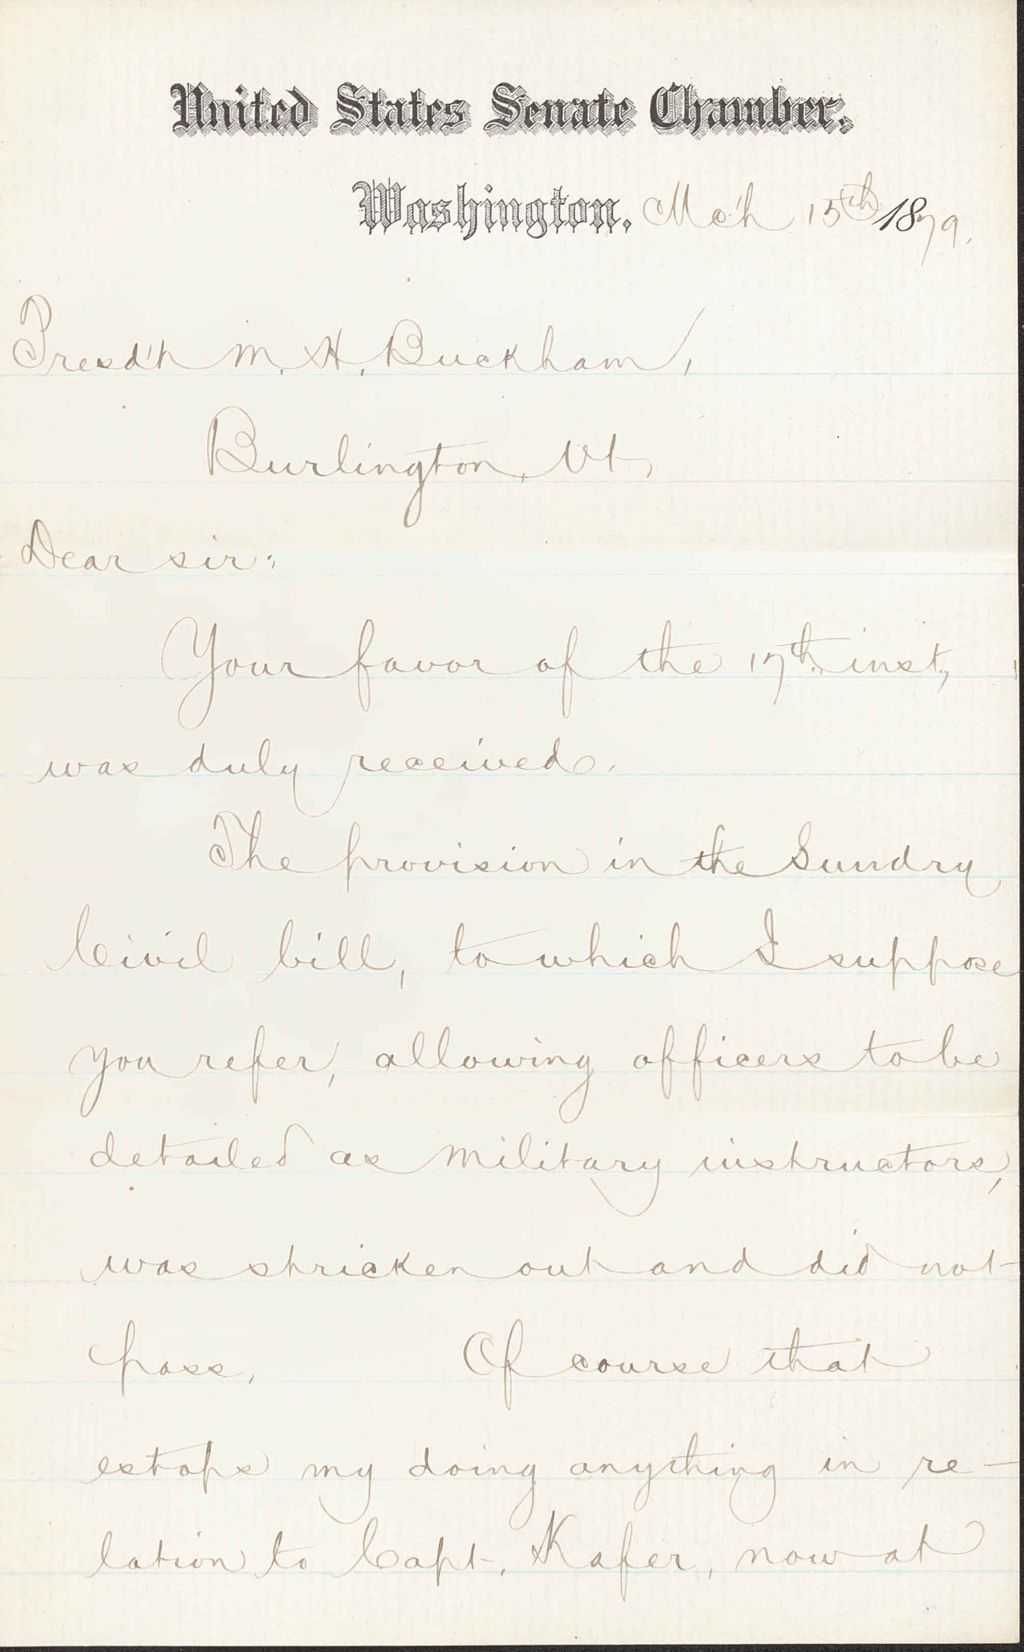 United States Senate Chamber.
Washington, Mch 15th 1879.
Presd't M. H. Buckham,
Burlington, Vt,
Dear sir:
Your favor of the 17th. inst.,
was duly received.
The provision in the Sundry
Civil bill, to which I suppose
you refer, allowing officers to be
detailed as military instructors,
was stricken out and did not
pass. Of course that
estops my doing anything in re-
lation to Capt. Kafer, now at